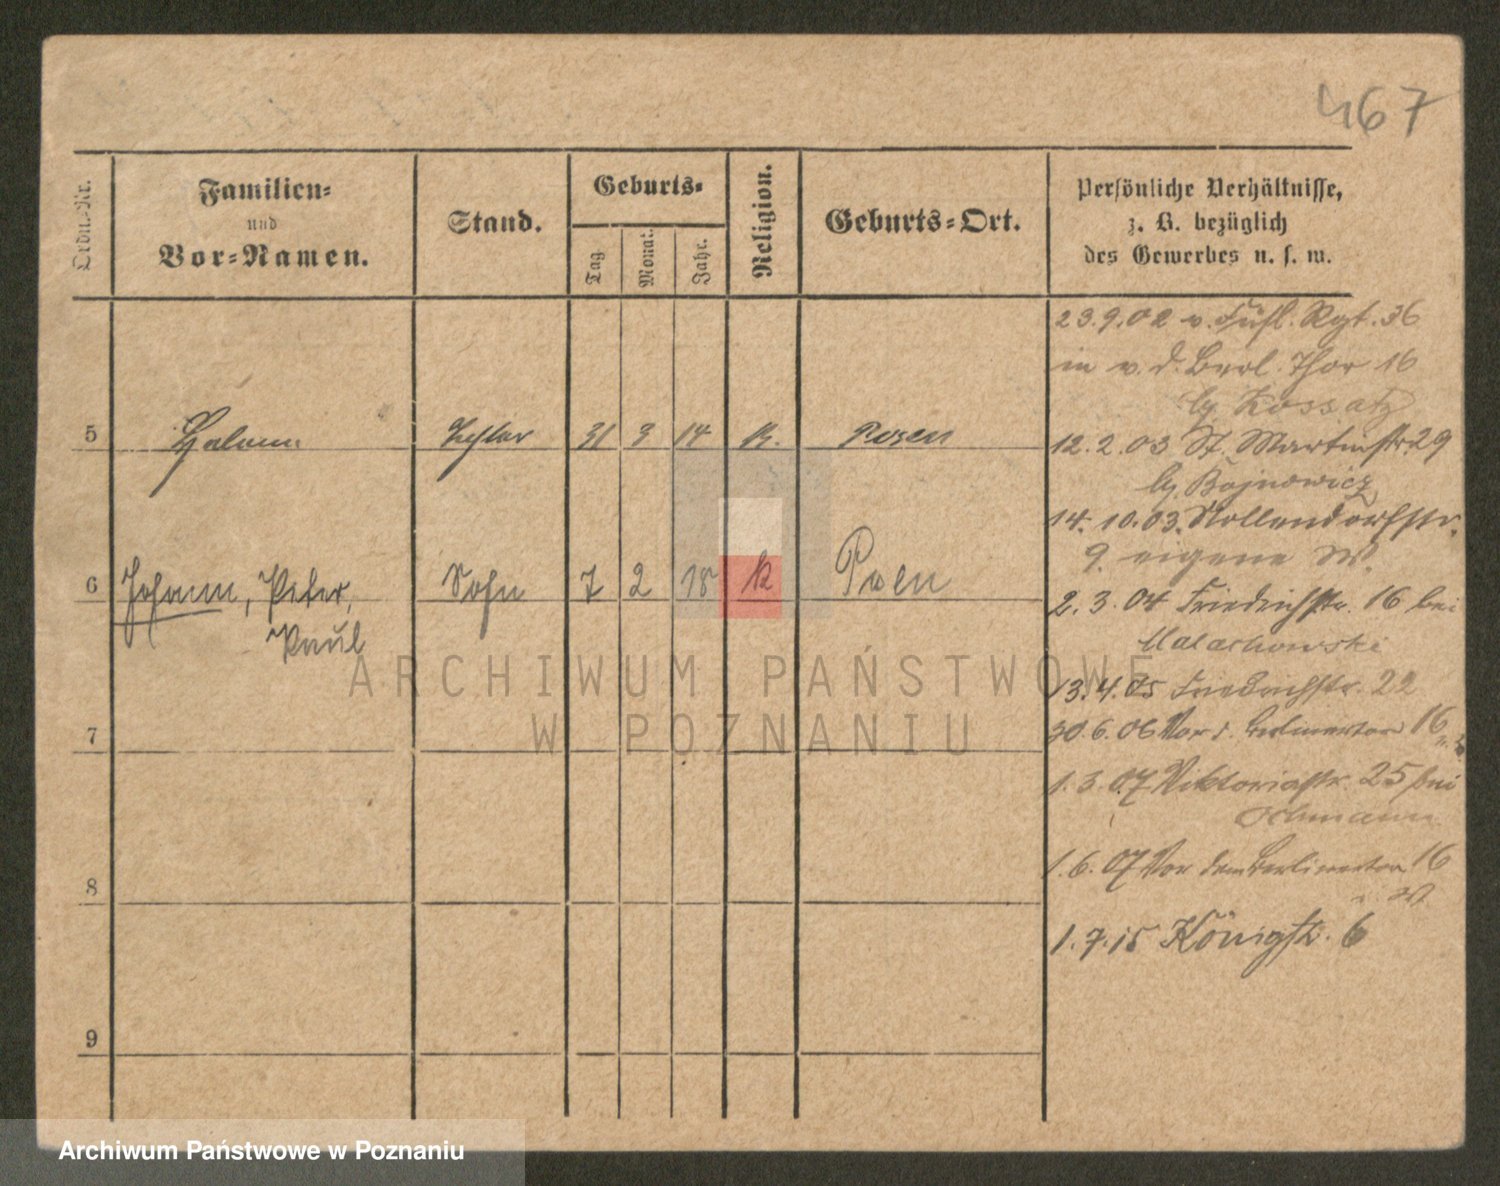 467
Ordn.-Nr.
Familien-
und
Vor-Namen.
Stand.
Geburts-
Tag
Monat.
Jahr.
Religion.
Geburts-Ort.
Persönliche Verhältnisse,
z. B. bezüglich
des Gewerbes u. s. w.
23.9.02 v. Füsl. Rgt. 36
in v. d. Berl. Thor 16
bg. Kossatz
5 Tochter 31 3 14 k. Posen
12.2.03 St. Martinstr. 29
bg. Bojnowicz
14.10.03. Nollendorfstr.
9. eigene W.
6 Johann, Peter, Sohn 7 2 18 k Posen
Paul
2.3.04 Friedrichstr. 16 bei
Malachowski
13.4.05 Friedrichstr. 22
7
30.6.06 Vor d. Berlinertor 16
1.3.07 Viktoriastr. 25 bei
8
1.6.07 Vor dem Berlinertor 16
1.7.15 Königstr. 6
9
ARCHIWUM PAŃSTWOWE
W POZNANIU
Archiwum Państwowe w Poznaniu